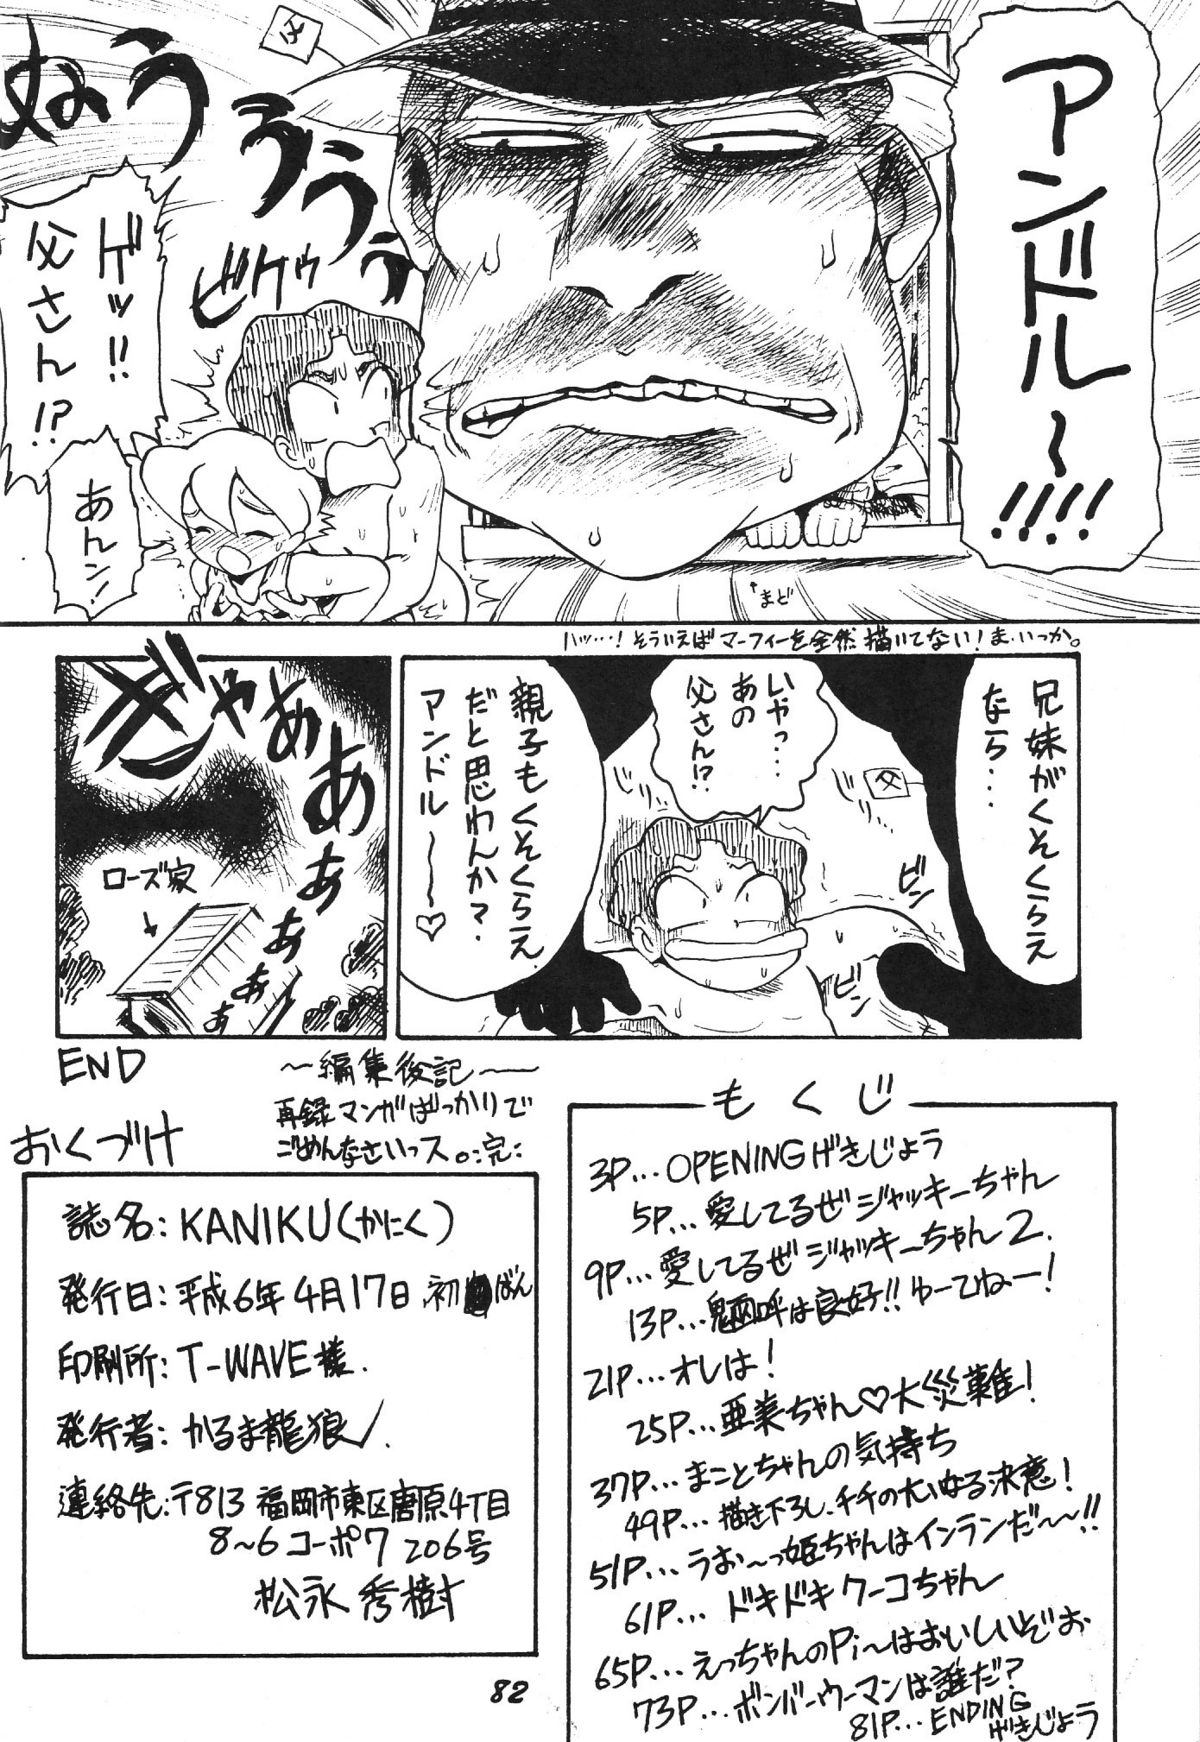 アンドル〜〜!!!!
父
ぬうううぅぅ
ビクゥ
ゲッ!!
父さん!?
あんッ!
↑まど
ハッ…!そういえばマーフィーを全然描いてない!ま、いっか。
兄妹がくそくらえ
なら…
いやっ…
あの
父さん!?
父
ビン
ビン
親子もくそくらえ
だと思わんか?
アンドル〜〜♡
ぎゃああああああぁ
ローズ家
END
〜編集後記〜
再録マンガばっかりで
ごめんなさいっス。:完:
おくづけ
誌名:KANIKU(かにく)
発行日:平成6年4月17日、初ばん
印刷所:T-WAVE様.
発行者:かるま龍狼.
連絡先:〒813 福岡市東区唐原4丁目
8〜6 コーポワ 206号
松永秀樹
もくじ
3P…OPENINGげきじょう
5P…愛してるぜジャッキーちゃん
9P…愛してるぜジャッキーちゃん2.
13P…呼は良好!!ゆーひねー!
21P…オレは!
25P…亜美ちゃん♡大災難!
37P…まことちゃんの気持ち
49P…描き下ろし、チチの大いなる決意!
51P…うお〜っ姫ちゃんはインランだ〜〜!!
61P…ドキドキクーコちゃん
65P…えっちゃんのPi〜はおいしいぞお
73P…ボンバーウーマンは誰だ?
81P…ENDING
げきじょう
82